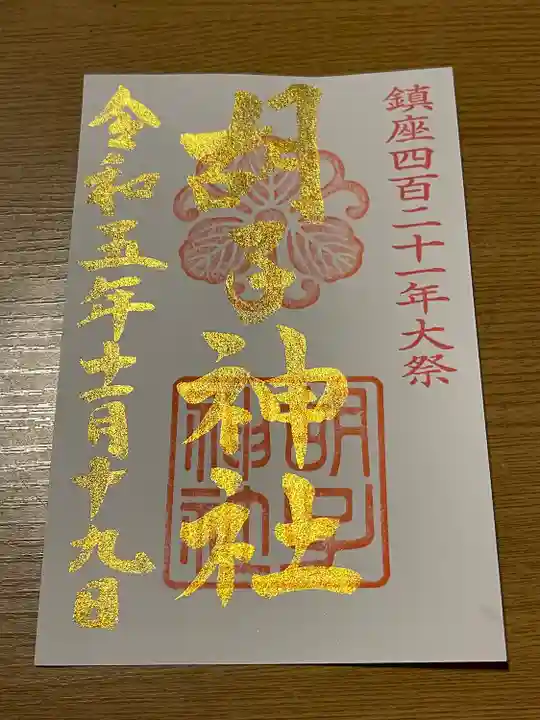 鎮座四百二十一年大祭
胡子神社
胡子神社
令和五年十一月十九日